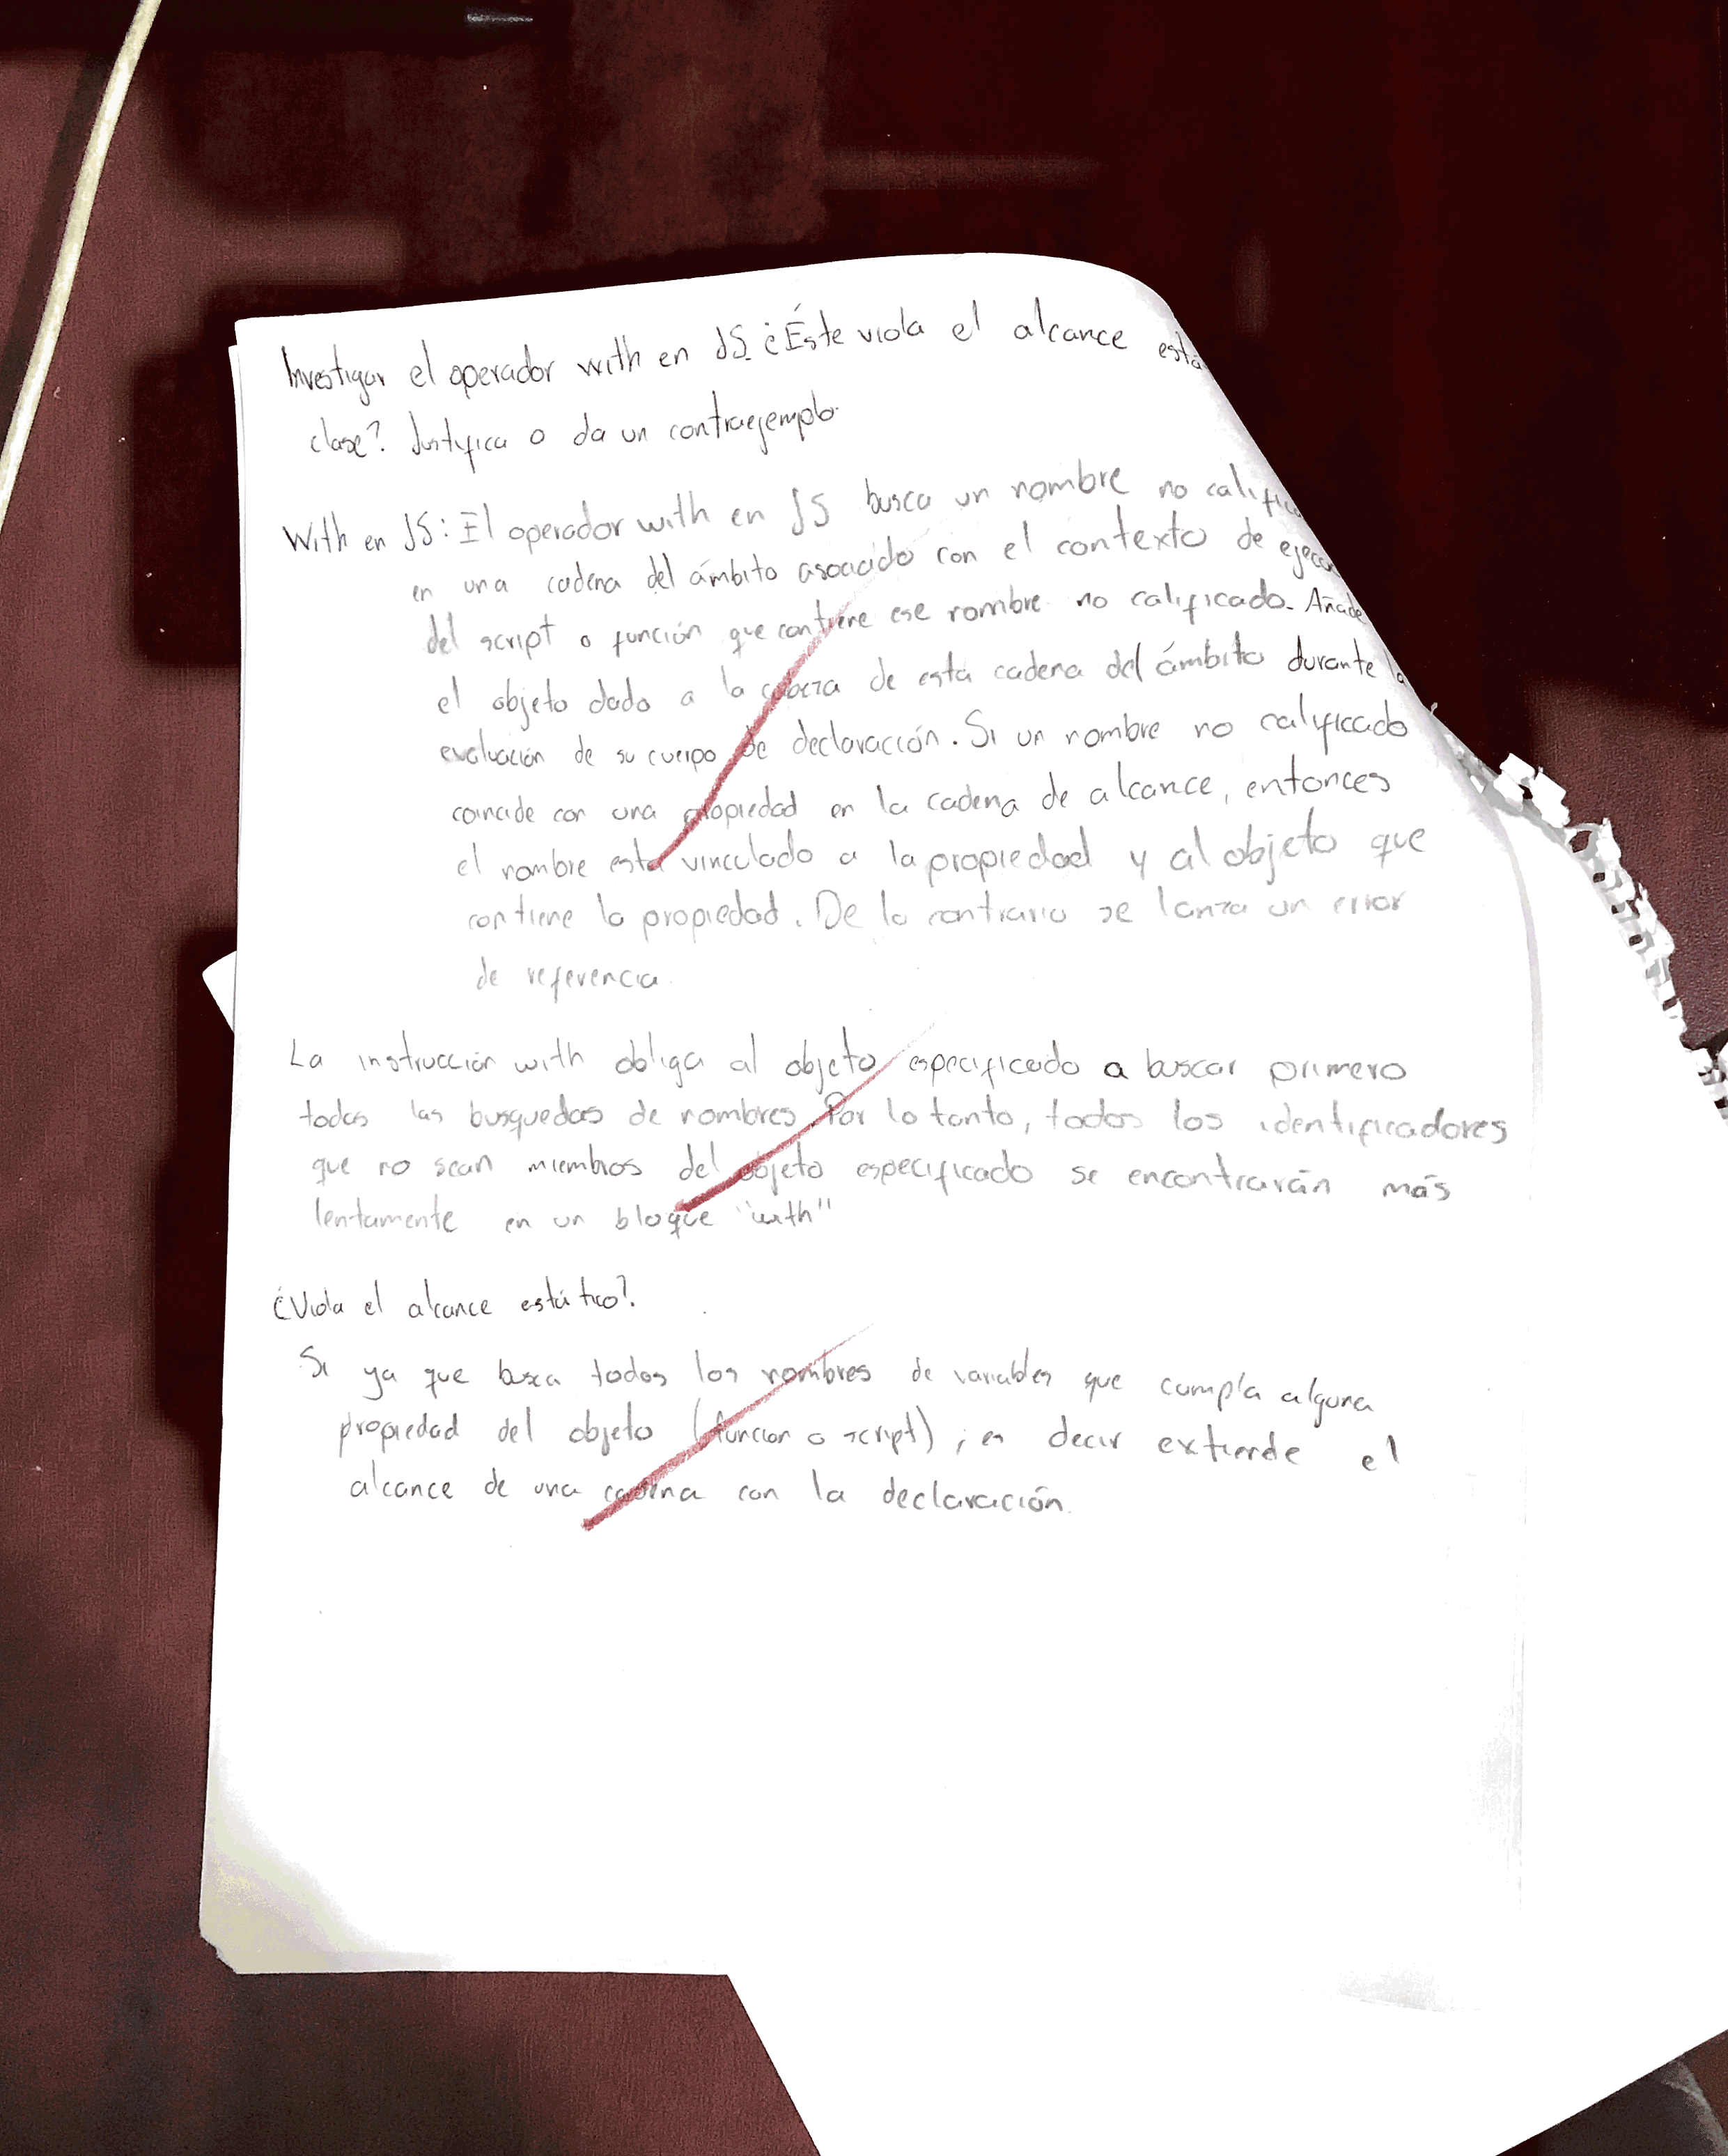 Investigar el operador with en JS ¿Éste viola el alcance está
clase? Justifica o da un contraejemplo.
With en JS: El operador with en JS busca un nombre no califica
en una cadena del ámbito asociado con el contexto de ejecu
del script o función que contiene ese nombre no calificado. Añade
el objeto dado a la cabeza de esta cadena del ámbito durante la
evaluación de su cuerpo de declaración. Si un nombre no calificado
coincide con una propiedad en la cadena de alcance, entonces
el nombre está vinculado a la propiedad y al objeto que
contiene la propiedad. De lo contrario se lanza un error
de referencia.
La instrucción with obliga al objeto especificado a buscar primero
todas las busquedas de nombres. Por lo tanto, todos los identificadores
que no sean miembros del objeto especificado se encontrarán más
lentamente en un bloque "with"
¿Viola el alcance estático?
Si ya que busca todos los nombres de variables que cumpla alguna
propiedad del objeto (funcion o script), es decir extiende el
alcance de una cadena con la declaración.